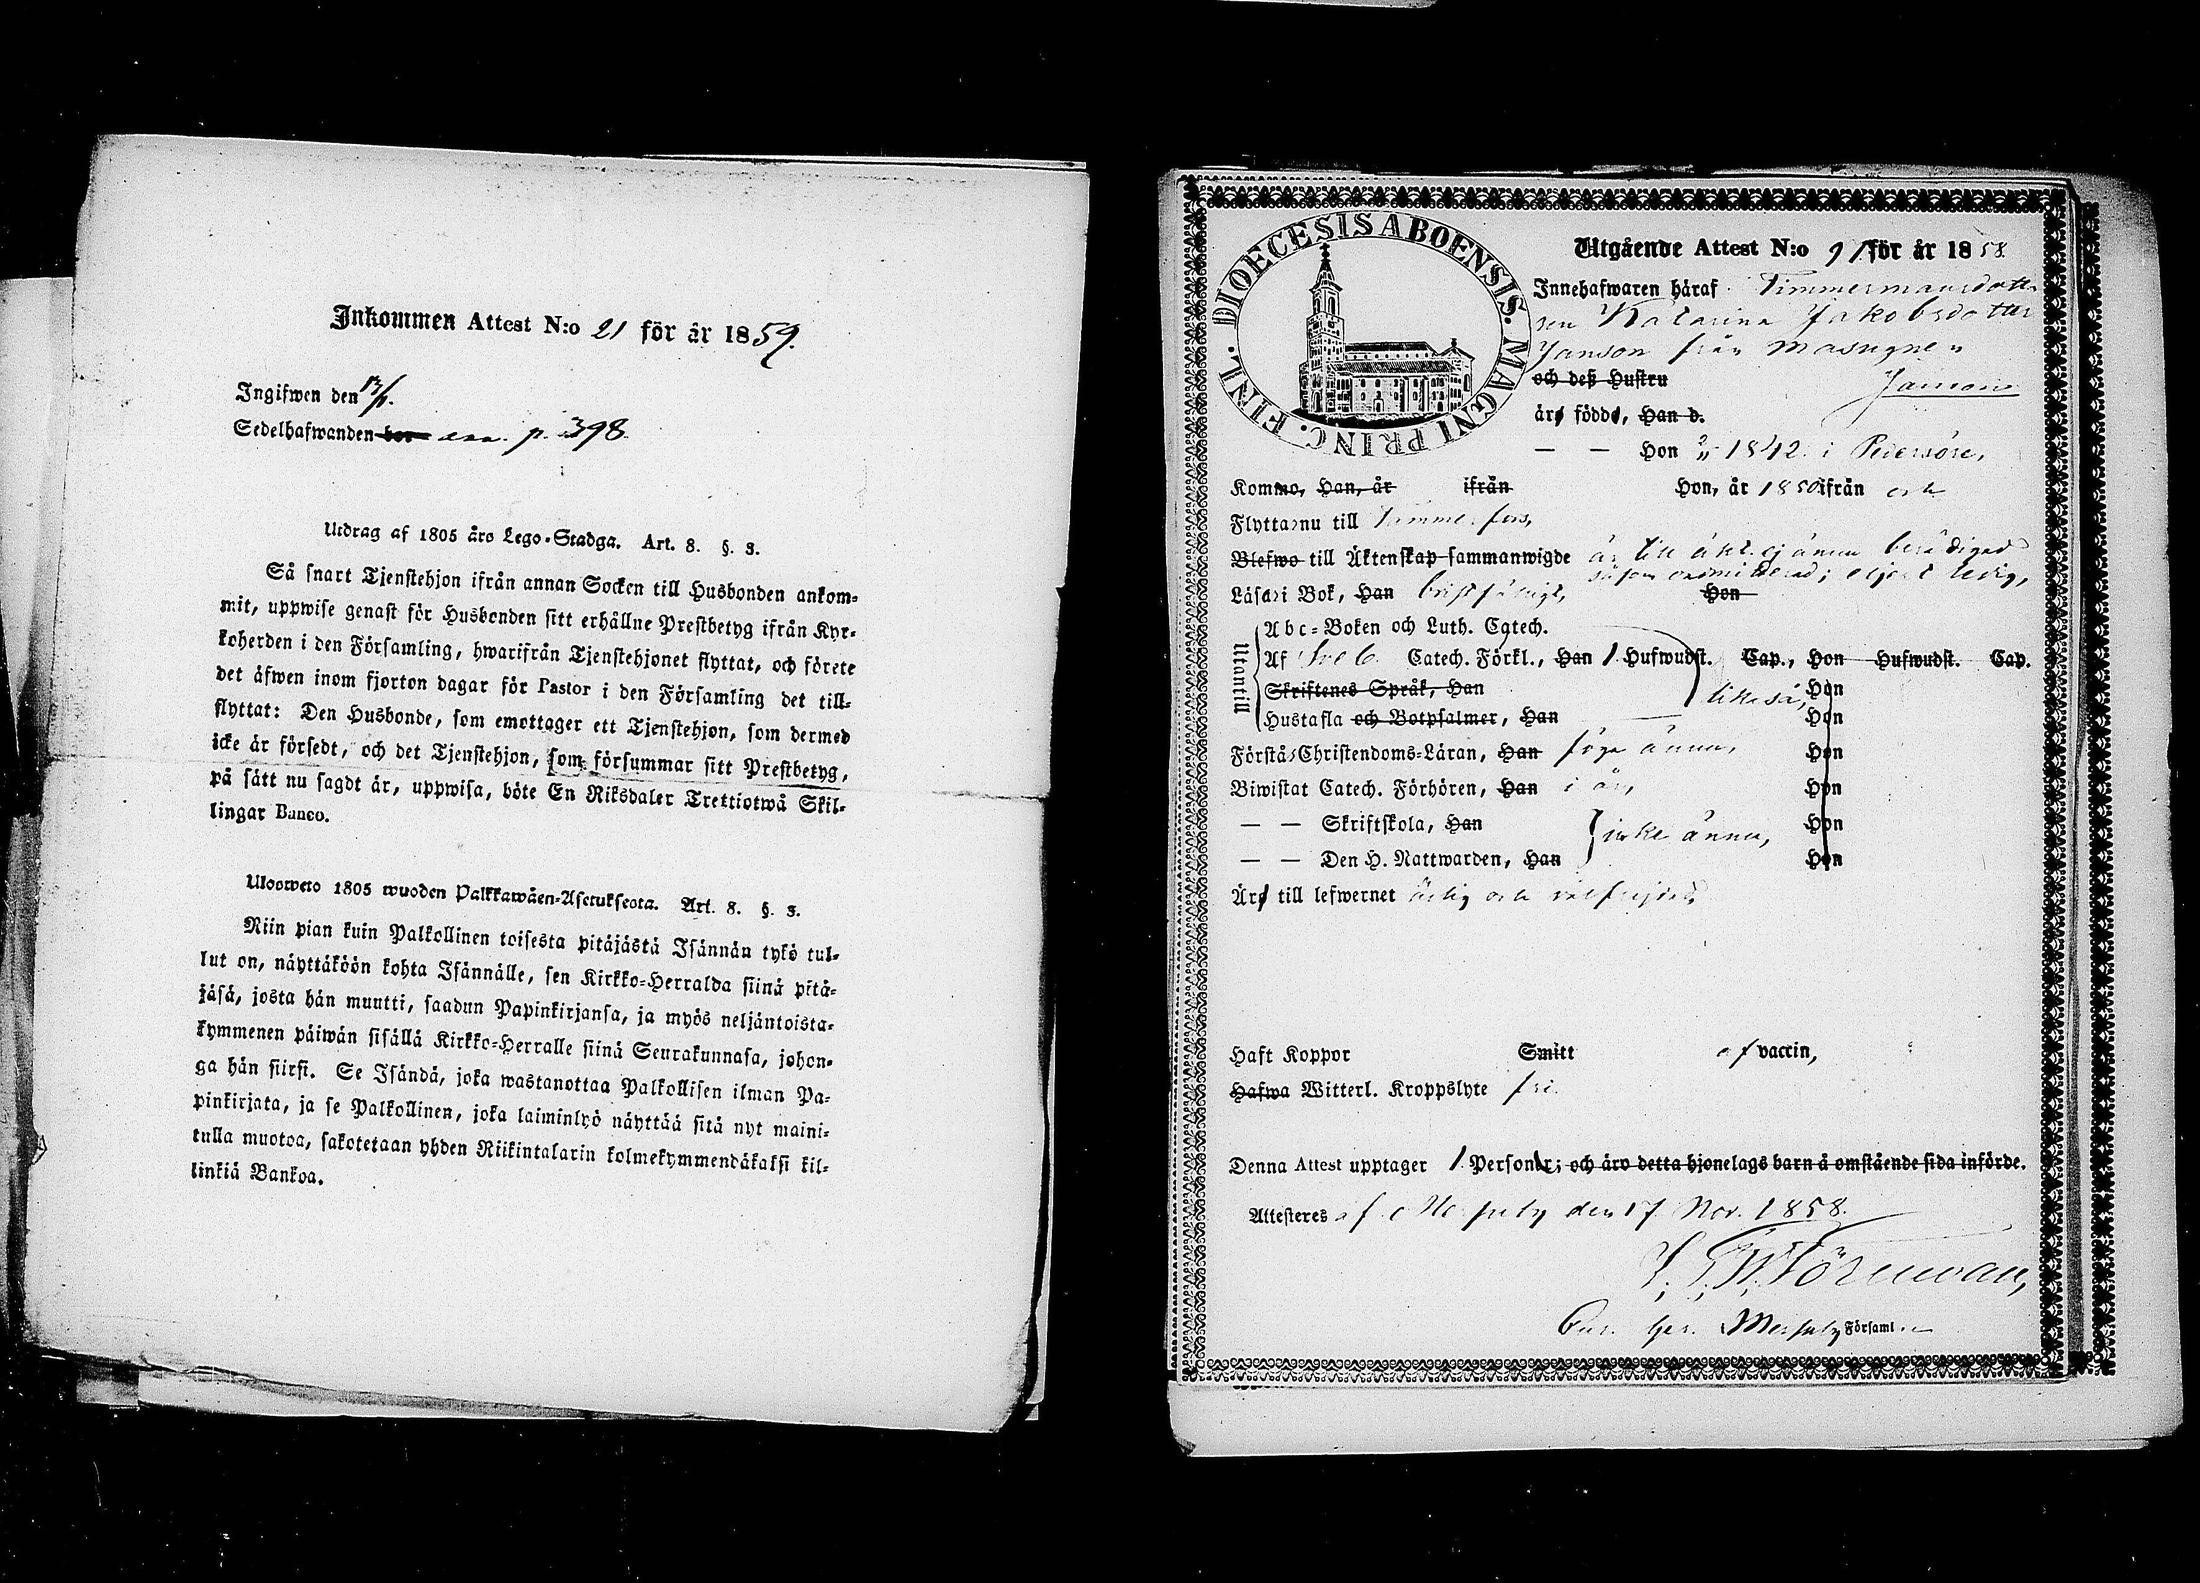 Inkommen Attest N:o 21 för år 1859.
Ingifwen den 13/1.
Sedelhafwanden bor ann. p. 398.
Utdrag af 1805 års Lego-Stadga. Art. 8. §. 3.
Så snart Tjenstehjon ifrån annan Socken till Husbonden ankom-
mit, uppwise genast för Husbonden sitt erhållne Prestbetyg ifrån Kyr-
koherden i den Församling, hwarifrån Tjenstehjonet flyttat, och förete
det äfwen inom fjorton dagar för Pastor i den Församling det till-
flyttat: Den Husbonde, som emottager ett Tjenstehjon, som dermed
icke är försedt, och det Tjenstehjon, som försummar sitt Prestbetyg,
på sätt nu sagdt är, uppwisa, böte En Riksdaler Trettiotwå Skil-
lingar Banco.
Ulosweto 1805 wuoden Palkkawäen-Asetuksesta. Art. 8. §. 3.
Niin pian kuin Palkollinen toisesta pitäjästä Isännän tykö tul-
lut on, näyttäköön kohta Isännälle, sen Kirkko-Herralda siinä pitä-
jäsä, josta hän muutti, saadun Papinkirjansa, ja myös neljäntoista-
kymmenen päiwän sisällä Kirkko-Herralle siinä Seurakunnasa, johon-
ga hän siirsi. Se Isändä, joka wastanottaa Palkollisen ilman Pa-
pinkirjata, ja se Palkollinen, joka laiminlyö näyttää sitä nyt maini-
tulla muotoa, sakotetaan yhden Riikintalarin kolmekymmendäkaksi kil-
linkiä Bankoa.
DIOECESIS ABOENSIS. MAGNI PRINC. FINL.
Utgående Attest N:o 91 för år 1858.
Innehafwaren häraf Timmermansdott-
ren Katarina Jakobsdotter
Janson från Masugnen
och deß Hustru Janson
äro födde, Han d.
— — Hon 1842. i Pedersöre,
Kommo, Han, år ifrån Hon, år 1850 ifrån
Flytta nu till Tammerfors,
Blefwo till Äktenskap sammanwigde är till äkt. ej ännu berättigad
såsom oadmitterad; eljest ledig,
Läsa i Bok, Han bristfälligt, Hon
Utantill
Abc-Boken och Luth. Catech.
Af Sveb. Catech. Förkl., Han 1 Hufwudst. Cap., Hon Hufwudst. Cap.
Skriftenes Språk, Han likaså, Hon
Hustafla och Botpsalmer, Han Hon
Förstå Christendoms-Läran, Han föga ännu, Hon
Biwistat Catech. Förhören, Han i år, Hon
— — Skriftskola, Han icke ännu, Hon
— — Den H. Nattwarden, Han Hon
Äro till lefwernet ärlig och välfrejdad,
Haft Koppor Smitt af vaccin,
Hafwa Witterl. Kroppslyte fri
Denna Attest upptager 1 Personer; och äro detta hjonelags barn å omstående sida införde.
Attesteras af den 17 Nov. 1858.
Församl